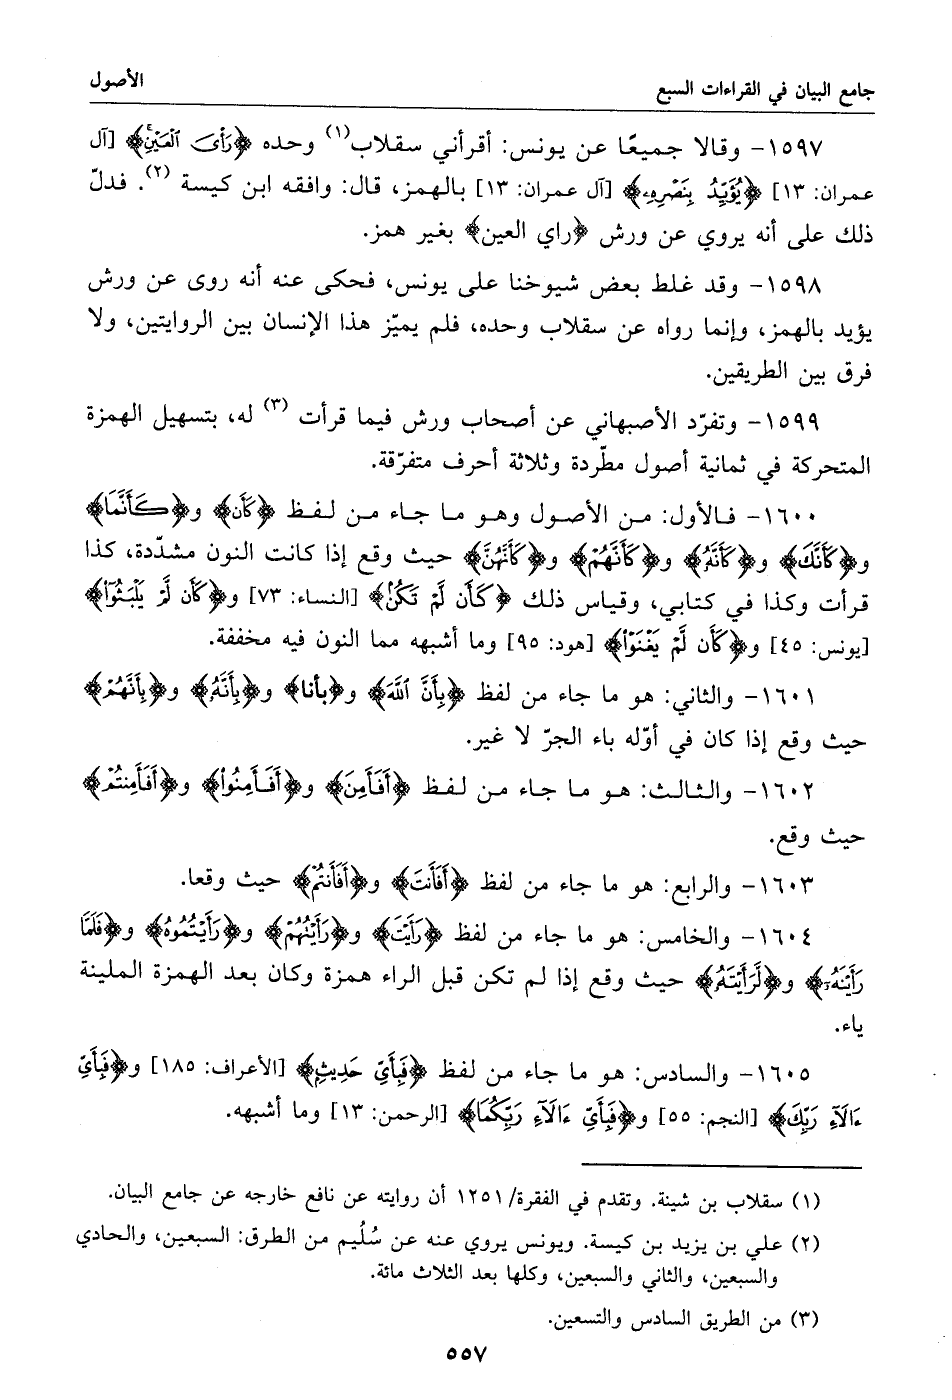 جامع البيان في القراءات السبع
الأصول
١٥٩٧- وقالا جميعًا عن يونس: أقرأني سقلاب(١) وحده ﴿رَأْىَ ٱلْعَيْنِۚ﴾ [آل
عمران: ١٣] ﴿يُؤَيِّدُ بِنَصْرِهِۦ﴾ [آل عمران: ١٣] بالهمز، قال: وافقه ابن كيسة (٢). فدلّ
ذلك على أنه يروي عن ورش ﴿راي العين﴾ بغير همز.
١٥٩٨- وقد غلط بعض شيوخنا على يونس، فحكى عنه أنه روى عن ورش
يؤيد بالهمز، وإنما رواه عن سقلاب وحده، فلم يميّز هذا الإنسان بين الروايتين، ولا
فرق بين الطريقين.
١٥٩٩- وتفرّد الأصبهاني عن أصحاب ورش فيما قرأت (٣) له، بتسهيل الهمزة
المتحركة في ثمانية أصول مطّردة وثلاثة أحرف متفرّقة.
١٦٠٠- فالأول: من الأصول وهو ما جاء من لفظ ﴿كَأَن﴾ و﴿كَأَنَّمَا﴾
و﴿كَأَنَّكَ﴾ و﴿كَأَنَّهُۥ﴾ و﴿كَأَنَّهُمْ﴾ و﴿كَأَنَّهُنَّ﴾ حيث وقع إذا كانت النون مشدّدة، كذا
قرأت وكذا في كتابي، وقياس ذلك ﴿كَأَن لَّمْ تَكُنۢ﴾ [النساء: ٧٣] و﴿كَأَن لَّمْ يَلْبَثُوٓا۟﴾
[يونس: ٤٥] و﴿كَأَن لَّمْ يَغْنَوْا۟﴾ [هود: ٩٥] وما أشبهه مما النون فيه مخففة.
١٦٠١- والثاني: هو ما جاء من لفظ ﴿بِأَنَّ ٱللَّهَ﴾ و﴿بأنا﴾ و﴿بِأَنَّهُۥ﴾ و﴿بِأَنَّهُمْ﴾
حيث وقع إذا كان في أوّله باء الجرّ لا غير.
١٦٠٢- والثالث: هو ما جاء من لفظ ﴿أَفَأَمِنَ﴾ و﴿أَفَأَمِنُوا۟﴾ و﴿أَفَأَمِنتُمْ﴾
حيث وقع.
١٦٠٣- والرابع: هو ما جاء من لفظ ﴿أَفَأَنتَ﴾ و﴿أَفَأَنتُمْ﴾ حيث وقعا.
١٦٠٤- والخامس: هو ما جاء من لفظ ﴿رَأَيْتَ﴾ و﴿رَأَيْتُهُمْ﴾ و﴿رَأَيْتُمُوهُ﴾ و﴿فَلَمَّا
رَأَيْنَهُۥٓ﴾ و﴿لَّرَأَيْتَهُۥ﴾ حيث وقع إذا لم تكن قبل الراء همزة وكان بعد الهمزة الملينة
ياء.
١٦٠٥- والسادس: هو ما جاء من لفظ ﴿فَبِأَىِّ حَدِيثٍۭ﴾ [الأعراف: ١٨٥] و﴿فَبِأَىِّ
ءَالَآءِ رَبِّكَ﴾ [النجم: ٥٥] و﴿فَبِأَىِّ ءَالَآءِ رَبِّكُمَا﴾ [الرحمن: ١٣] وما أشبهه.
(١) سقلاب بن شينة. وتقدم في الفقرة/ ١٢٥١ أن روايته عن نافع خارجه عن جامع البيان.
(٢) علي بن يزيد بن كيسة. ويونس يروي عنه عن سُليم من الطرق: السبعين، والحادي
والسبعين، والثاني والسبعين، وكلها بعد الثلاث مائة.
(٣) من الطريق السادس والتسعين.
٥٥٧